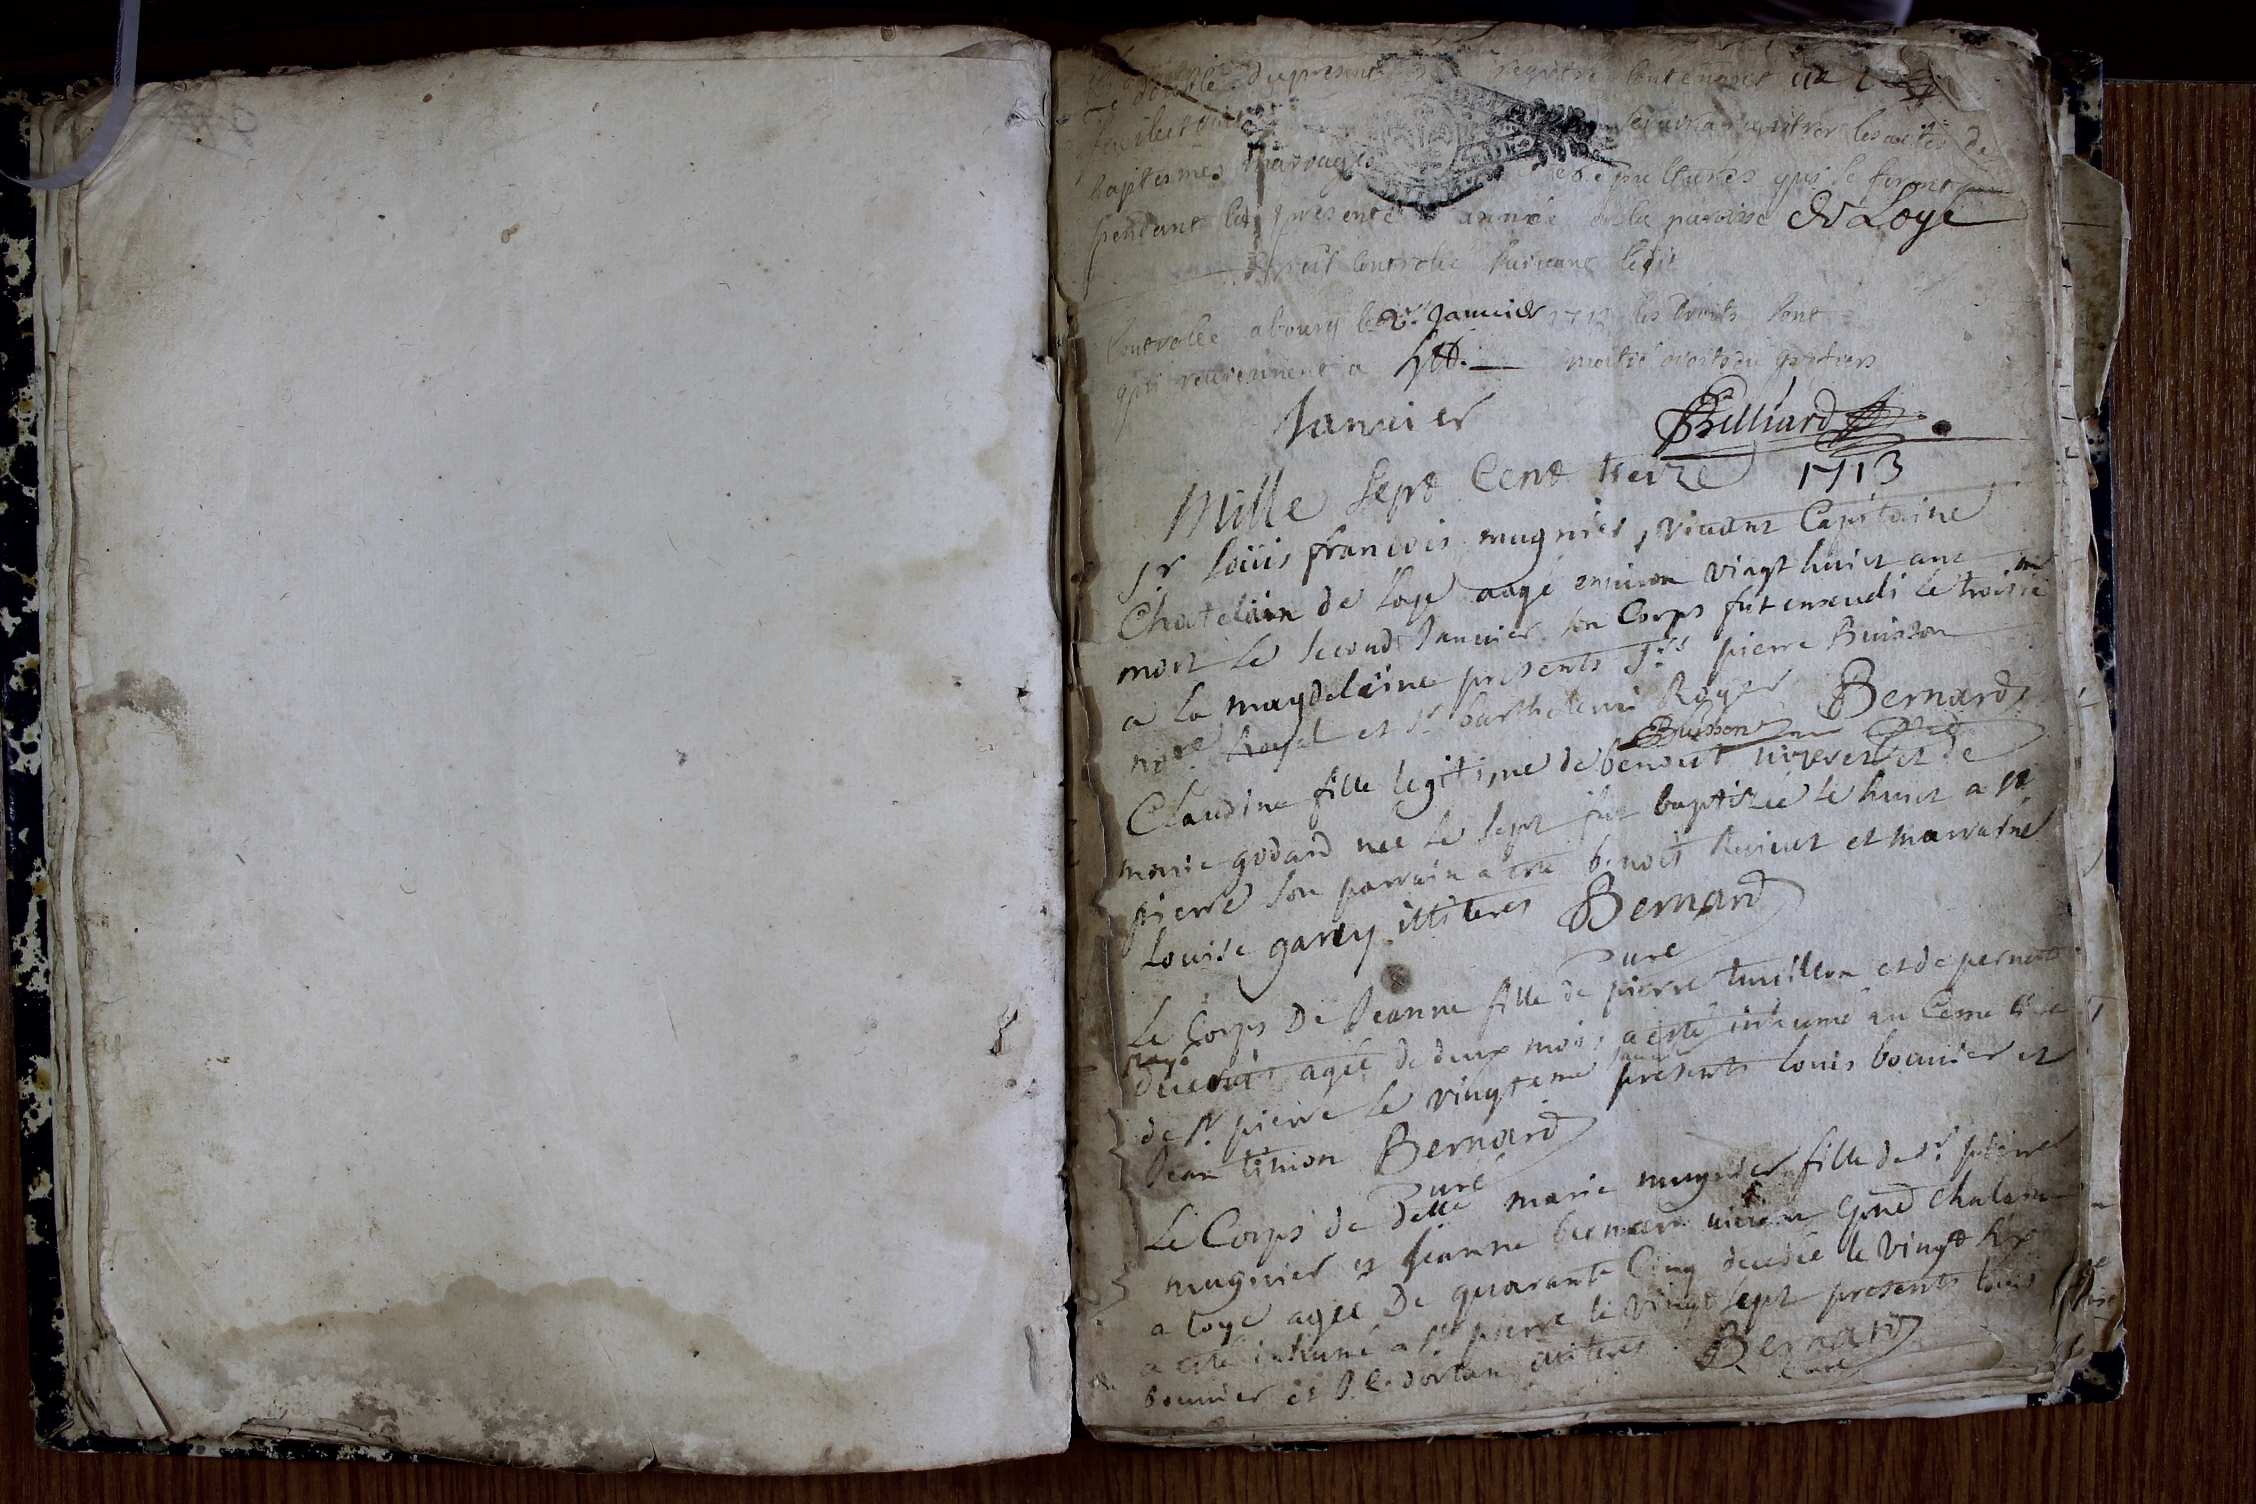 Le double du present registre contenant
feuilet pour les actes de
baptesmes mariages et sepultures qui se feront
pendant la presente année de la paroisse de Loye
controlle suivant ledit
Controllé a bourg le 2e. Janvier 1713 les droits sont
qui reviennent a moitié droits du greffiers
Janvier Billiard
Mille Sept Cent treize 1713
Sr Loüis françois mugnier, vivant Capitaine
Chatelain de Loye aagé environ vingt huict ans
mort le second Janvier son Corps fut enseveli le troisie
me
a la magdelaine presents Srs pierre Buisson
nore Royal et Sr barthelemi Roger Bernard
Buisson Curé
Claudine fille legitime de benoit et de
marie godard nee le sept fut baptizée le huict a St
pierre son parrain a esté benoit et marraine
Louise garey illiteres Bernard
Curé
Le Corps De Jeanne fille de pierre et de pernette
agée de deux mois a esté inhumé au Cemetiere
de St pierre le vingtieme presents louis bouvier et
Jean timon Bernard
Curé
Le Corps de Delle marie mugnier fille de Sr
mugnier et Jeanne bernard
a loye agee De quarante Cinq decedée le vingt six
a esté inhumé a St pierre le vingt sept presents louis
bouvier et dortan Bernard
Curé